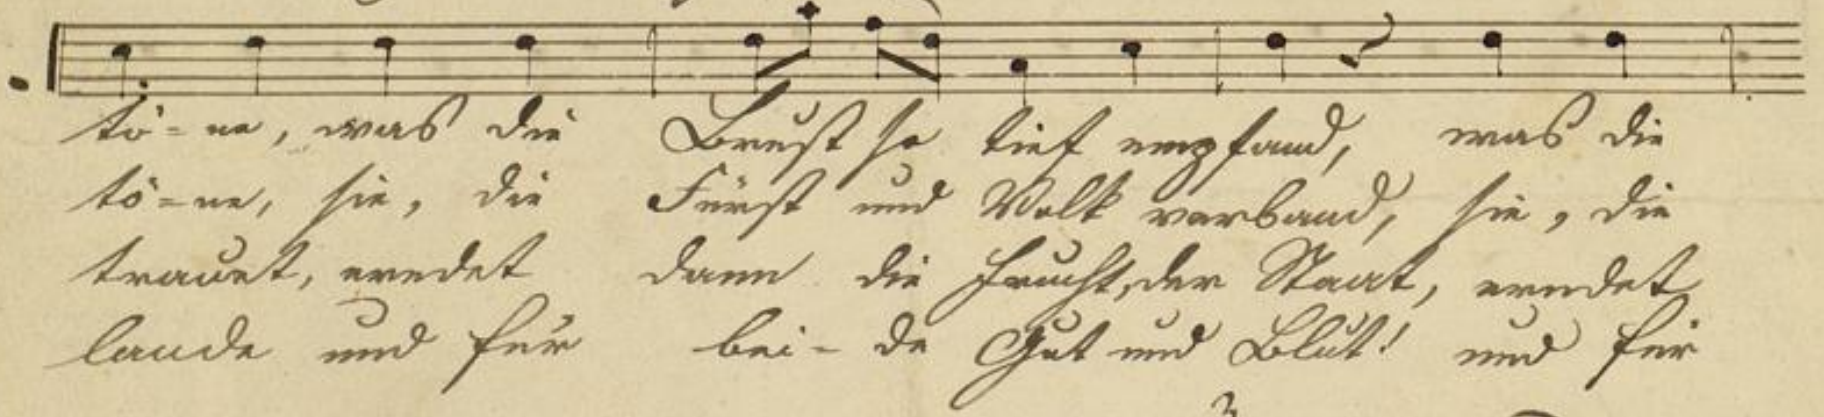 tö-ne, was die Brust so tief empfand, was die
tö-ne, sie, die Fürst und Volk verband, sie, die
trauet, erndet dann die Frucht, der Staat, erndet
lande und für bei-de Gut und Blut! und für
3